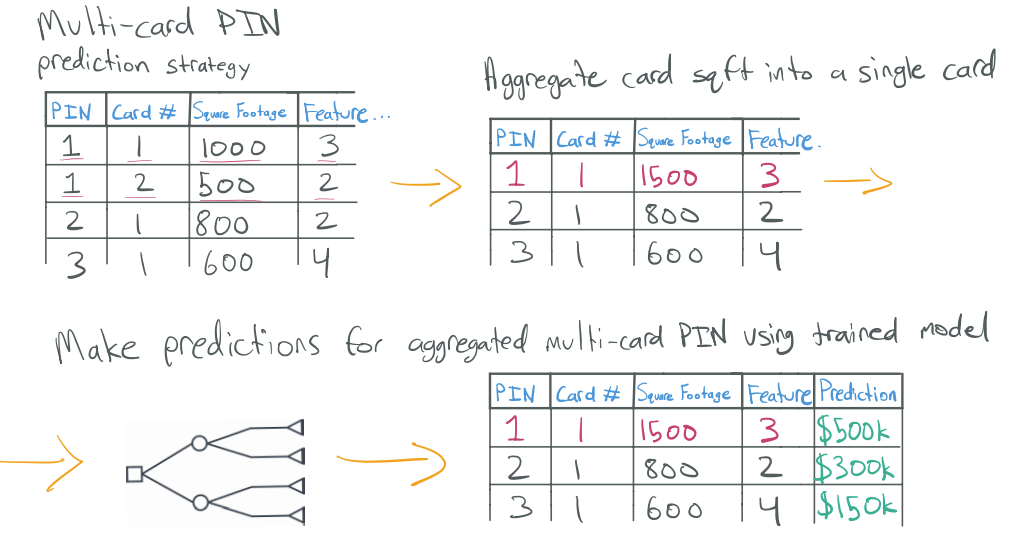 Multi-card PIN
prediction strategy
PIN Card # Square Footage Feature...
1 1 1000 3
1 2 500 2
2 1 800 2
3 1 600 4
Aggregate card sqft into a single card
PIN Card # Square Footage Feature.
1 1 1500 3
2 1 800 2
3 1 600 4
Make predictions for aggregated multi-card PIN using trained model
PIN Card # Square Footage Feature Prediction
1 1 1500 3 $500k
2 1 800 2 $300k
3 1 600 4 $150k